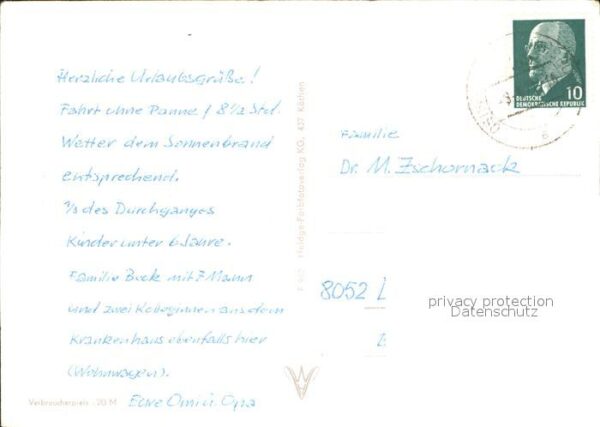 Herzliche Urlaubsgrüße!
Fahrt ohne Panne / 8 1/2 Std.
Wetter dem Sonnenbrand
entsprechend.
2/3 des Durchganges
Kinder unter 6 Jahre.
Familie Bock mit 7 Mann
und zwei Kolleginnen aus dem
Krankenhaus ebenfalls hier
(Wohnwagen).
Eure Omi u. Opa
Verbraucherpreis -,20 M
Heldge-Farbfotoverlag KG, 437 Köthen
DEUTSCHE
DEMOKRATISCHE REPUBLIK
10
Familie
Dr. M. Zschornack
8052
privacy protection
Datenschutz